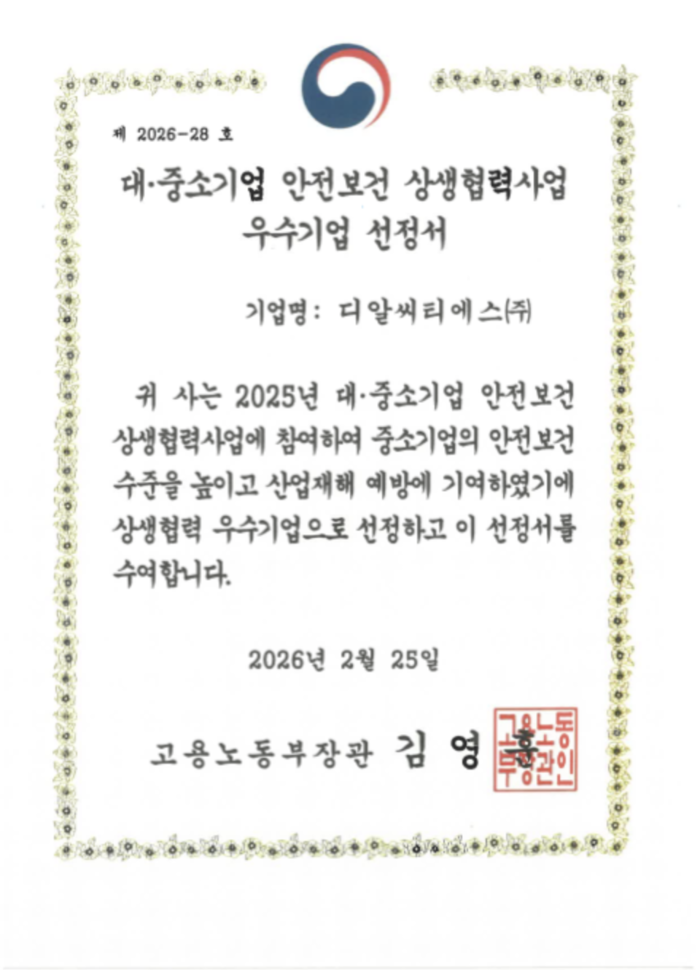 제 2026-28 호
대·중소기업 안전보건 상생협력사업
우수기업 선정서
기업명: 디알씨티에스㈜
귀 사는 2025년 대·중소기업 안전보건
상생협력사업에 참여하여 중소기업의 안전보건
수준을 높이고 산업재해 예방에 기여하였기에
상생협력 우수기업으로 선정하고 이 선정서를
수여합니다.
2026년 2월 25일
고용노동부장관 김 영 훈
고용노동
부장관인